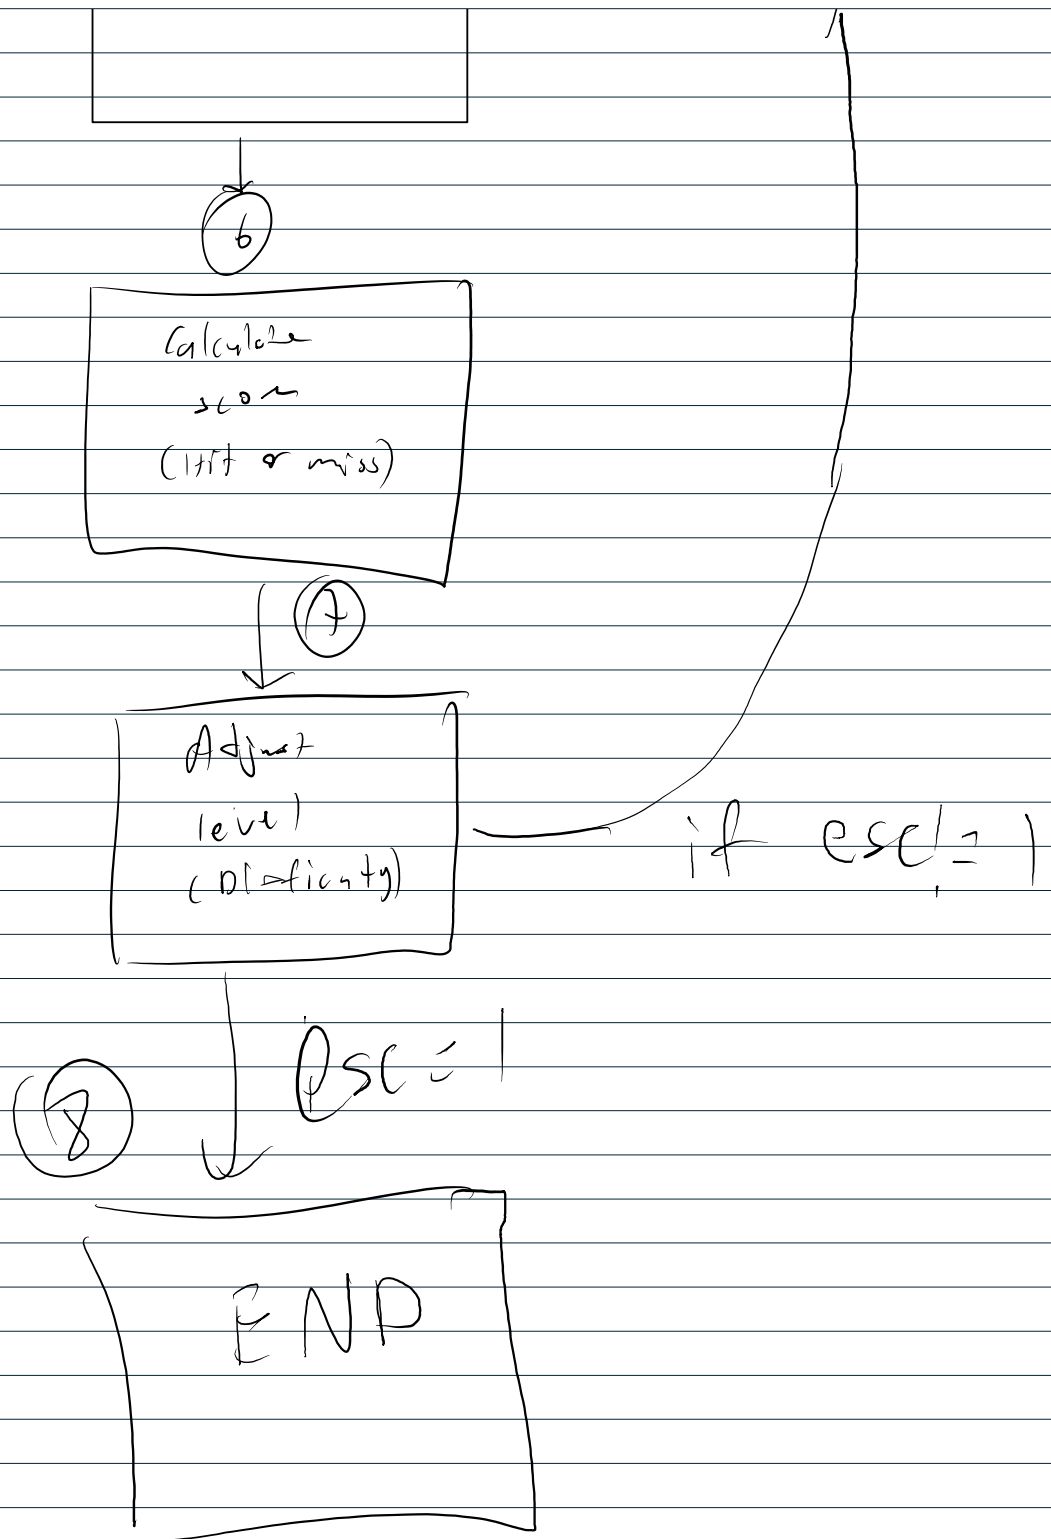 6
Calculate
score
(Hit or miss)
7
Adjust
level
(Dificulty)
if esc!=1
esc=1
8
END